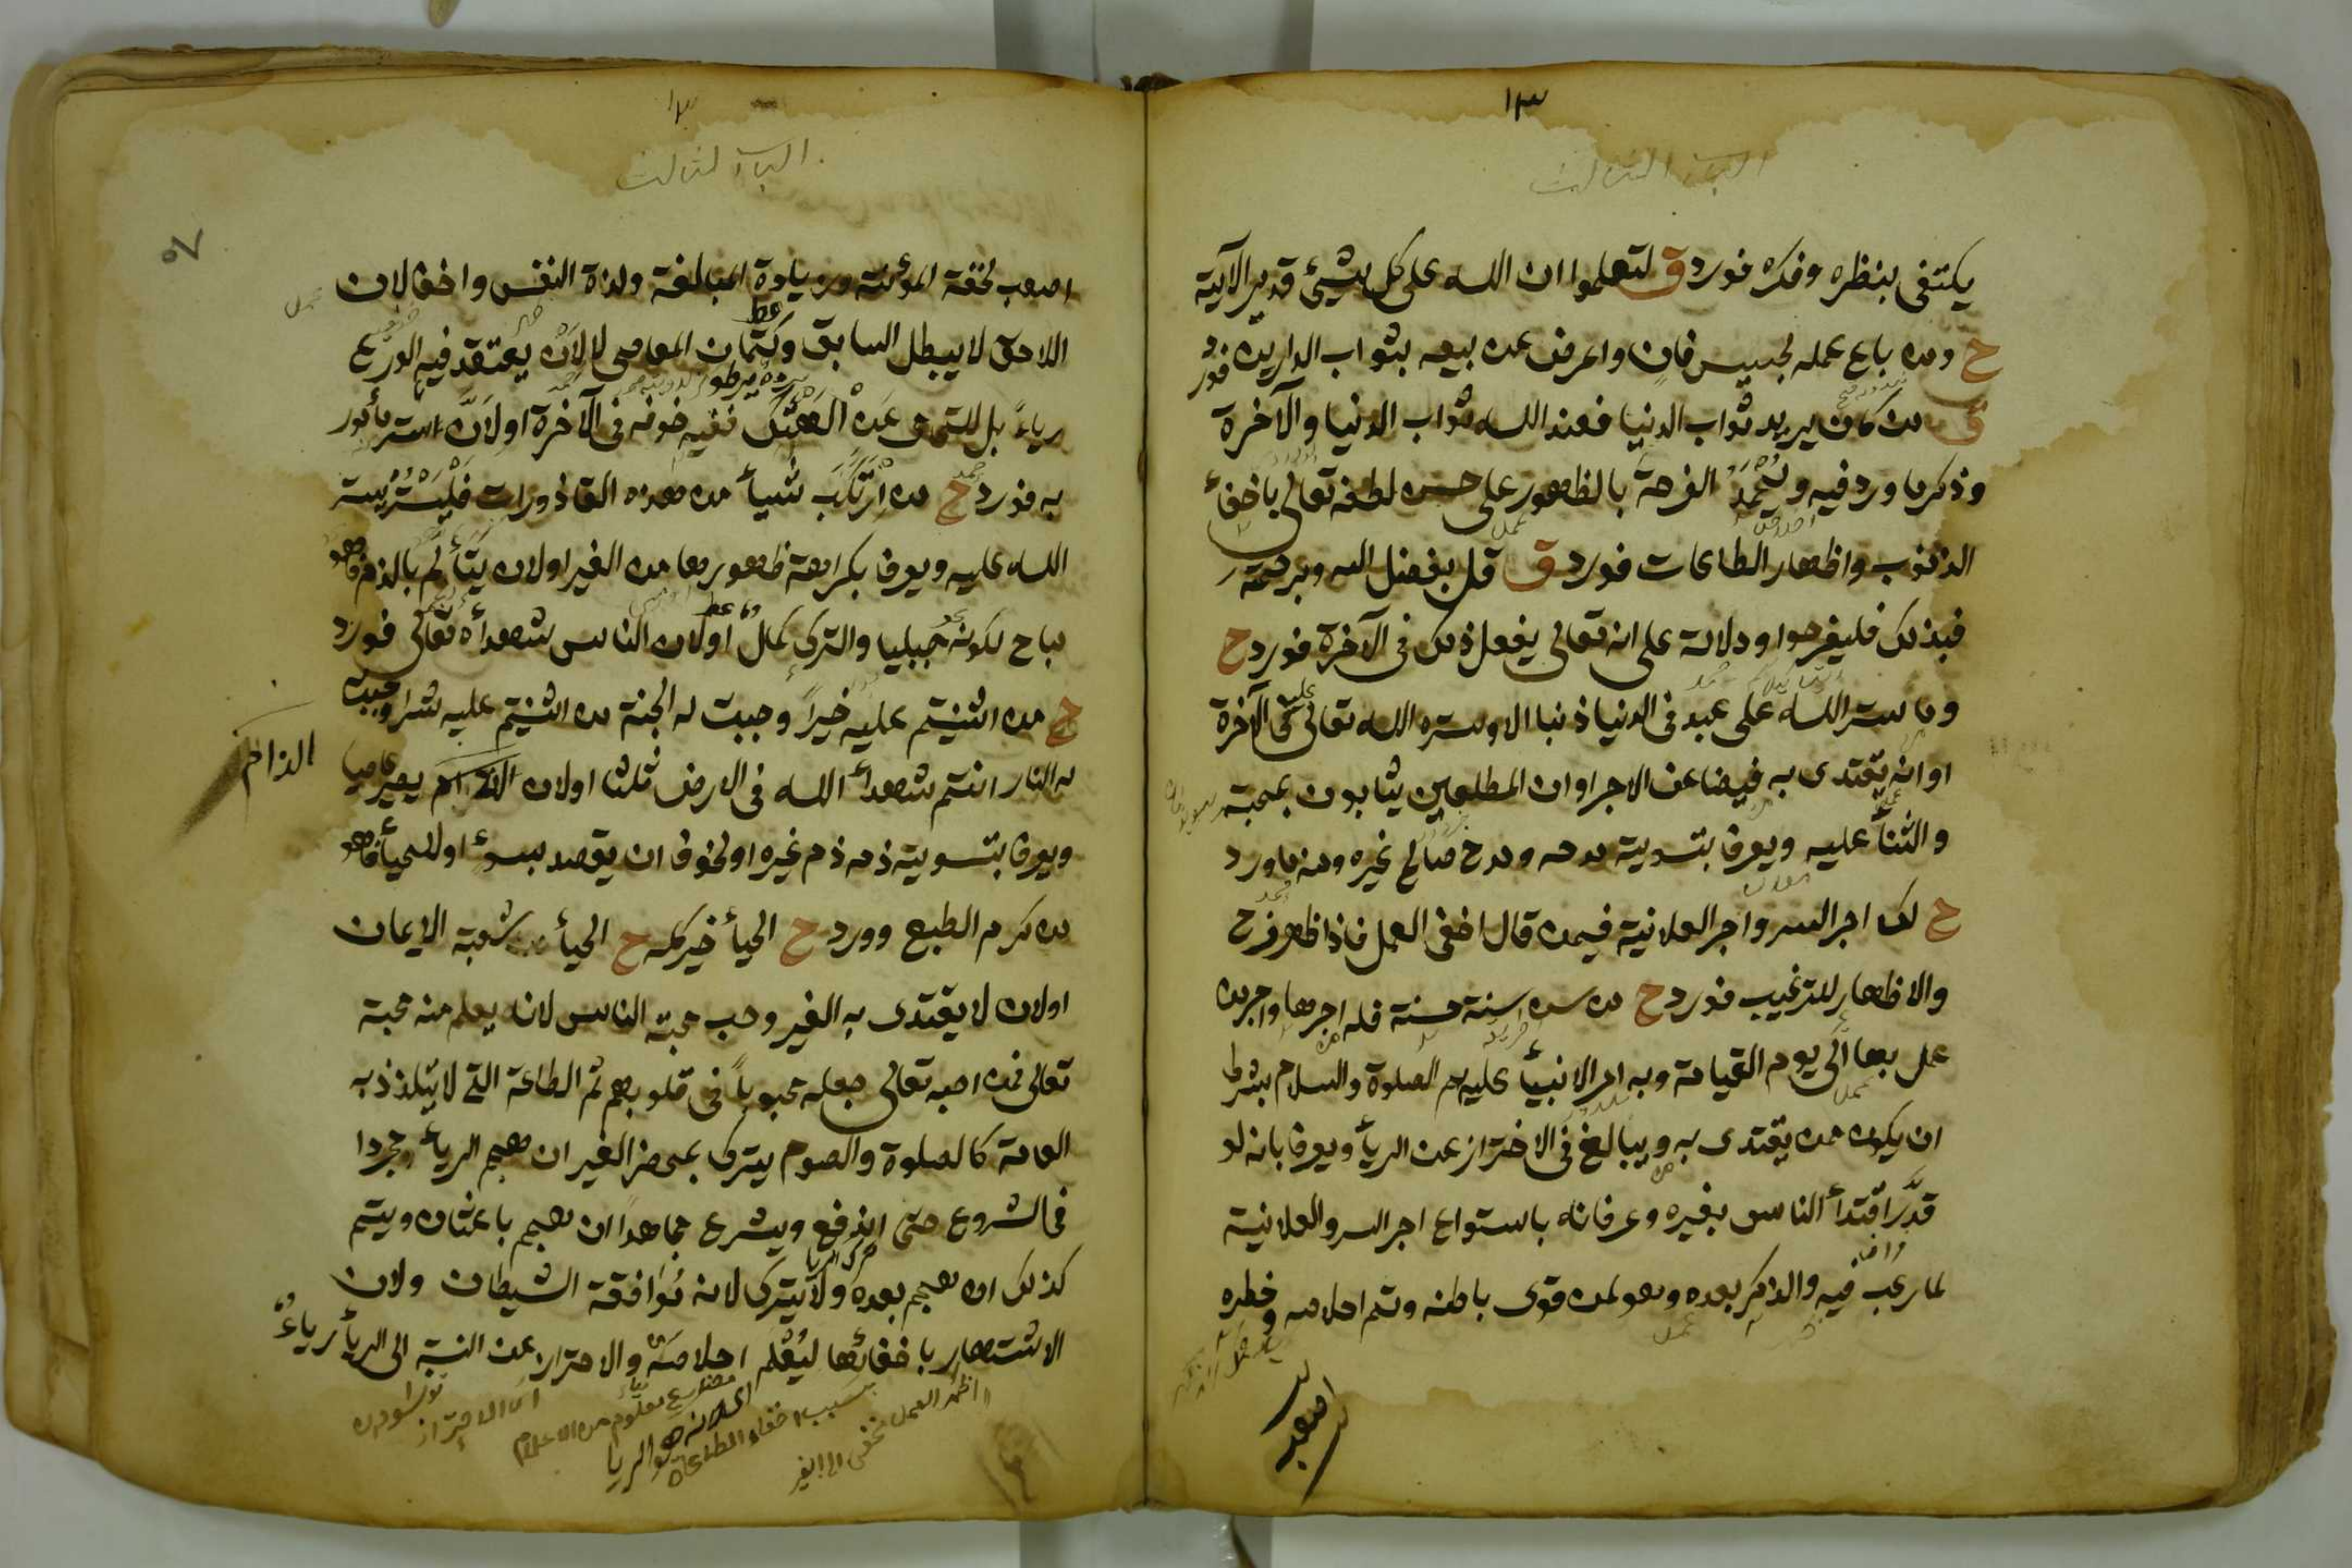 ١٣
الباب الثالث
يكتفى بنظره وفكره فورد ق لتعلموا ان الله على كل شيئ قدير الآية
ح ومن باع عمله لخسيس فان واعرض عن بيعه بثواب الدارين فورد
ق من كان يريد ثواب الدنيا فعند الله ثواب الدنيا والآخرة
وذكر ما ورد فيه ويُحْمَدُ الفرحة بالظهور على حسن لطفه تعالى باخفاء
الذنوب واظهار الطاعات فورد ق قل بفضل الله وبرحمته
فبذلك فليفرحوا ودلالة على انه تعالى يفعل ذلك فى الآخرة فورد ح
وما ستر الله على عبد فى الدنيا ذنبا الا وستره الله تعالى عليه فى الآخرة
او انه يقتدى به فيضاعف الاجر او ان المطلعين يثابون بمحبته
والثناء عليه ويعرف بتسوية مدحه ومدح صالح غيره ومنه ما ورد
ح لك اجر السر واجر العلانية فيمن قال اخفى العمل فاذا ظهر فرح
والاظهار للترغيب فورد ح من سن سنة حسنة فله اجرها واجر من
عمل بها الى يوم القيامة وبه امر الانبياء عليهم الصلوة والسلام بشرط
ان يكون ممن يقتدى به ويبالغ فى الاحتراز عن الرياء ويعرف بانه لو
قدّر اقتداء الناس بغيره وعرفانه باستواء اجر السر والعلانية
لما رغب فيه والذكر بعده وهو لمن قوى باطنه وتم اخلاصه وخطره
اصعب
١٣
الباب الثالث
٥٧
اصعب لخفة المؤنة وزيادة المبالغة ولذة النفس واخف لان
اللاحق لا يبطل السابق وكتمان المعاصى لا لانه يعتقد فيه الورع
رياءً بل للتوقى عن الهتك ففيه خوفه فى الآخرة او لانّ الستر مأمور
به فورد ح من ارتكب شيأ من هذه القاذورات فليستر بستر
الله عليه ويعرف بكراهة ظهورها من الغير او لان يتألم بالذم وهو
مباح لكونه جبليا والترك كمالٌ او لان الناس شهداءه تعالى فورد
ح من اثنيتم عليه خيراً وجبت له الجنة من اثنيتم عليه شرا وجبت
له النار انتم شهداء الله فى الارض ثلثا او لان الذام يصير عاصيا
الذام
ويعرف بتسوية ذمه ذم غيره او لخوف ان يقصد بسوء او للحياء فهو
من كرم الطبع وورد ح الحياء خير كله ح الحياء من شعبة الايمان
او لان لا يقتدى به الغير وحب محبة الناس لانه يعلم منه محبة
تعالى فمن احبه تعالى جعله محبوباً فى قلوبهم ثم الطاعة التى لا يتلذذ به
العامة كالصلوة والصوم يترك بمحضر الغير ان هجم الرياء مجردا
فى الشروع حتى اندفع ويشرع مجاهداً ان هجم باعثان ويتم
كذلك ان هجم بعده ولا يترك لانه موافقة الشيطان ولان
الاشتهار باخفائها ليُعْلَم اخلاصه والاحتراز عن النسبة الى الرياء رياءٌ